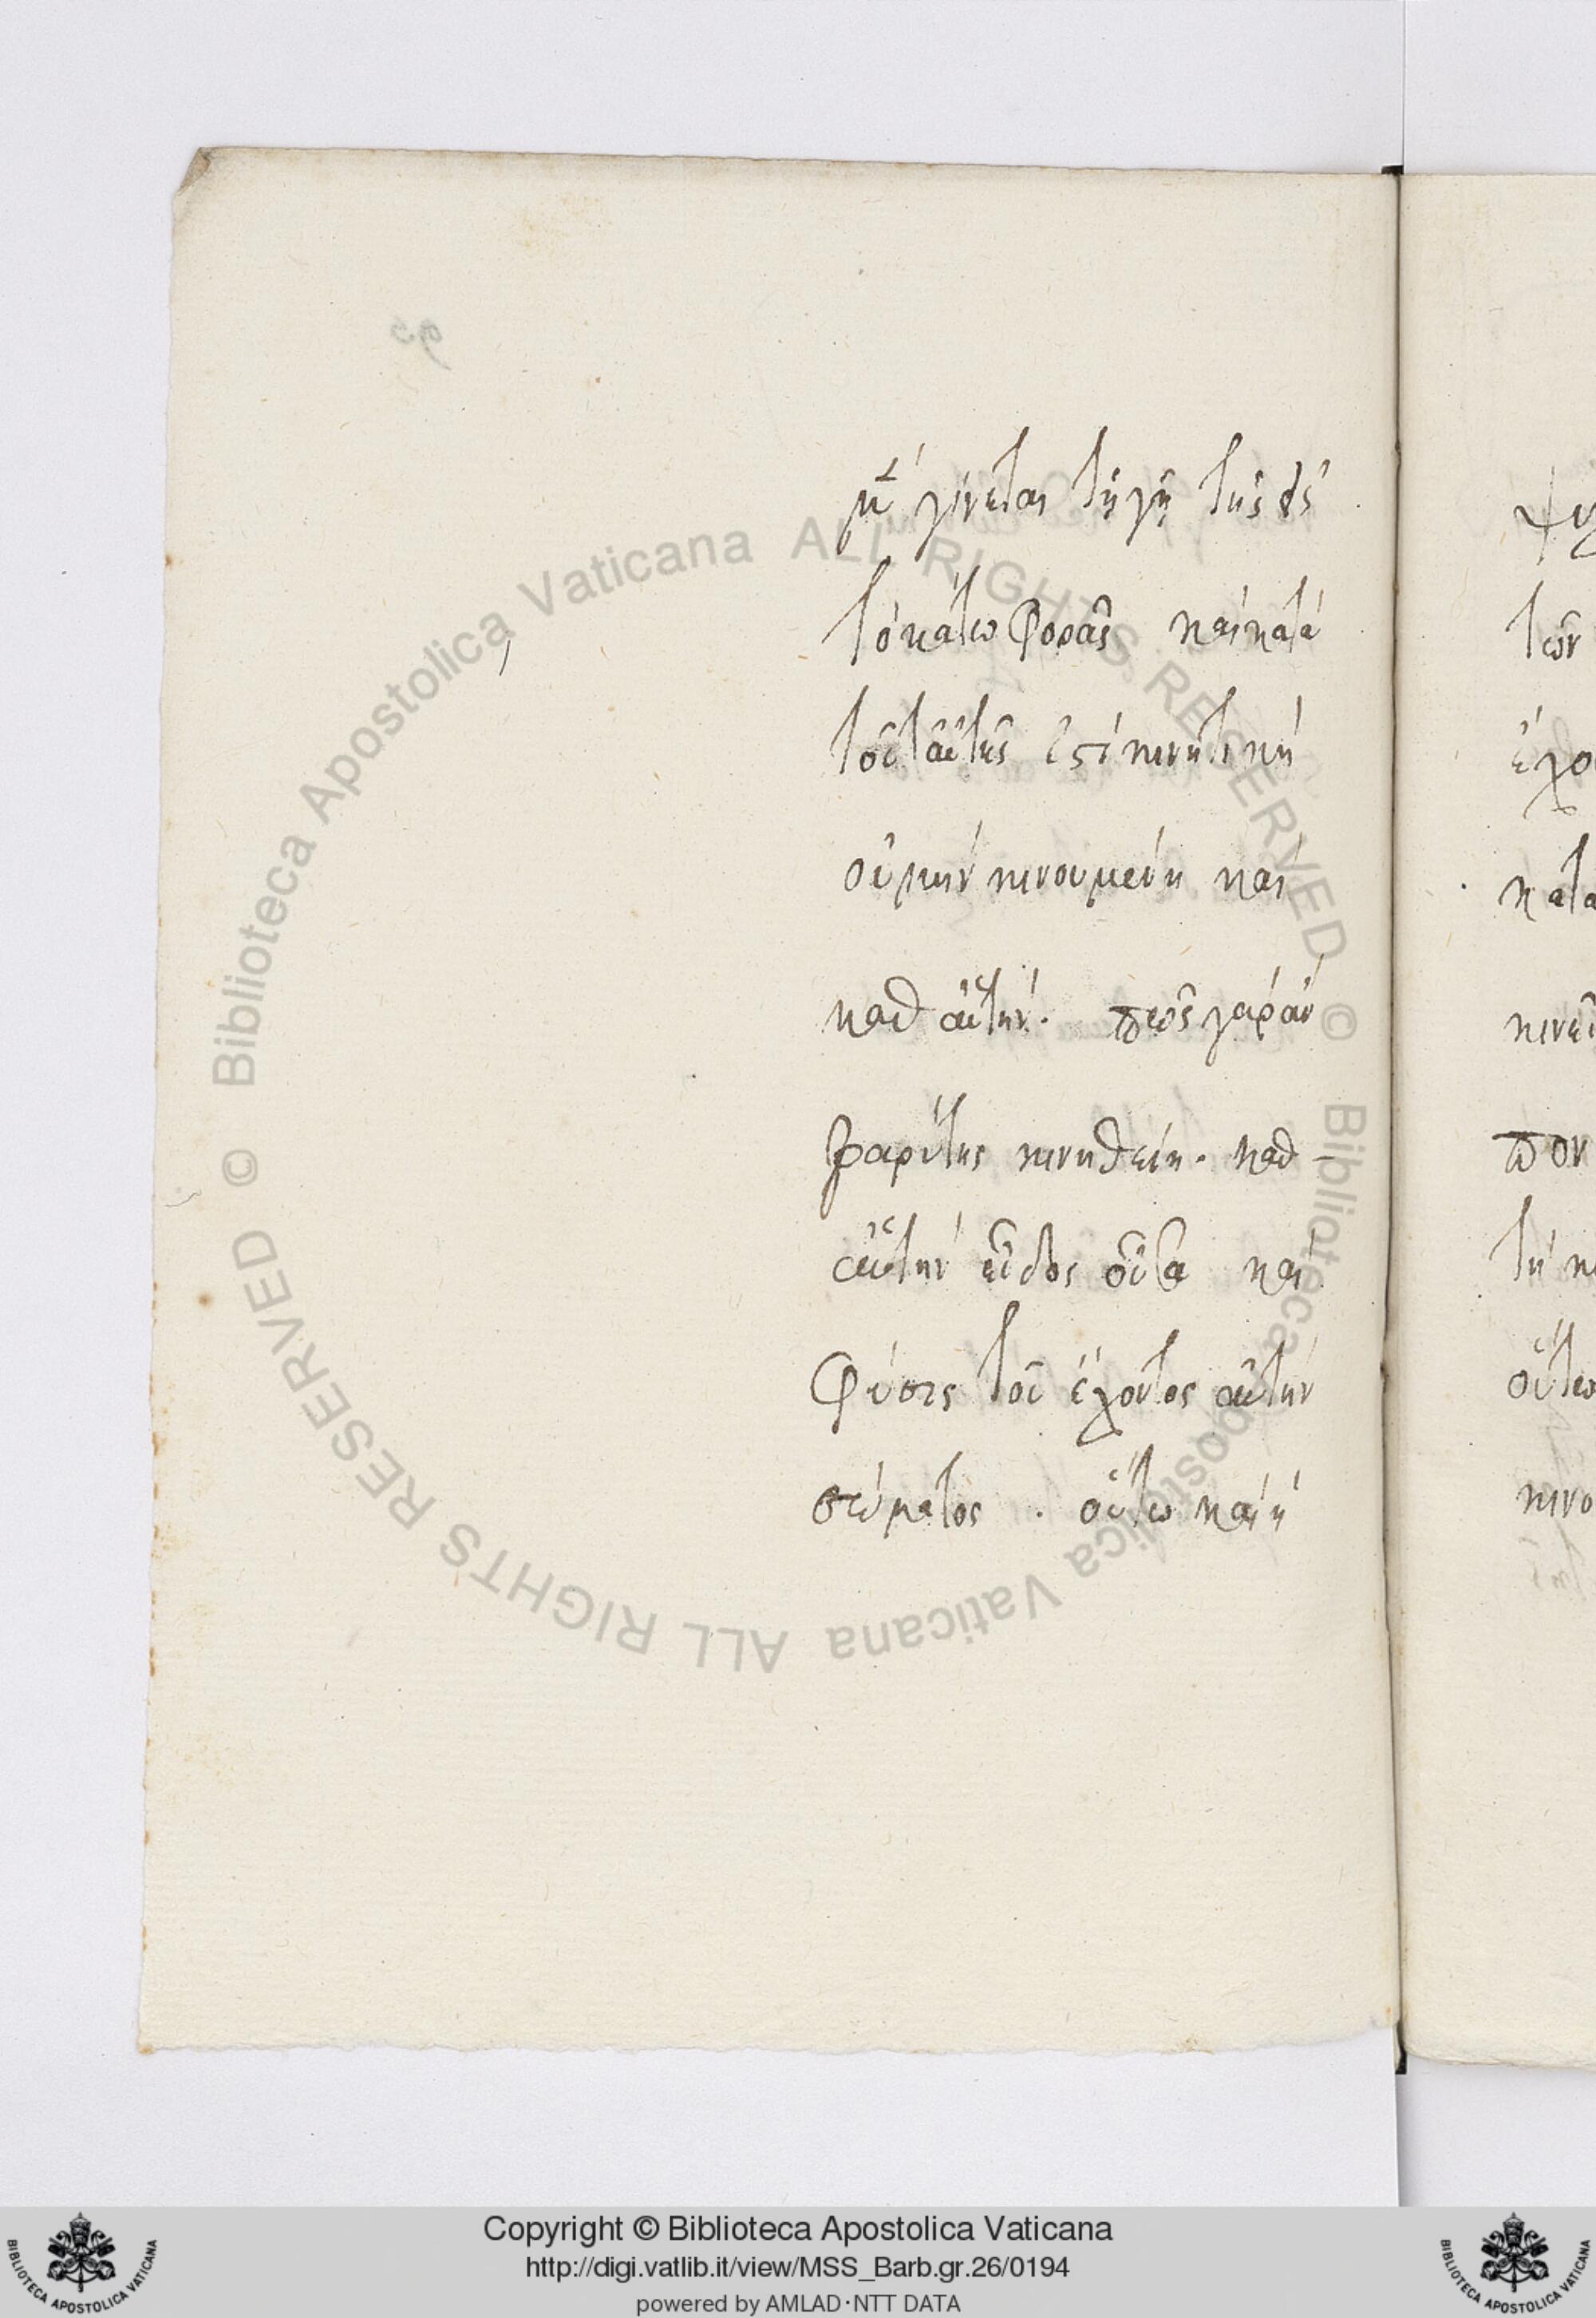 γίνεται τῇ γῇ τῆς ἐς
τὸ κάτω φορᾶς καὶ κατὰ
τοῦτ αὐτῆς ἐστὶ κινητικὴ
οὐ μὴν κινουμένη καὶ
καθ αὑτήν. πῶς γὰρ ἂν
βαρύτης κινηθείη. καθ-
αὑτὴν εἶδος οὖσα καὶ
φύσις τοῦ ἔχοντος αὐτὴν
σώματος . οὕτω καὶ ἡ
τῶν
κατα
πον
οὕτω
Copyright © Biblioteca Apostolica Vaticana
http://digi.vatlib.it/view/MSS_Barb.gr.26/0194
powered by AMLAD·NTT DATA
BIBLIOTECA APOSTOLICA VATICANA
BIBLIOTECA APOSTOLICA VATICANA
© Biblioteca Apostolica Vaticana ALL RIGHTS RESERVED © Biblioteca Apostolica Vaticana ALL RIGHTS RESERVED